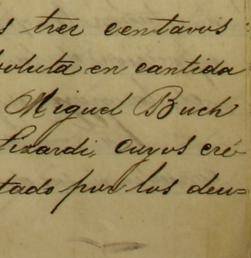 s tres centavos
soluta en cantida
Miguel Buch
Lizardi, cuyos cré-
tado por los deu=